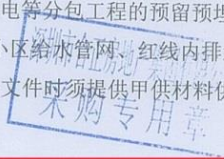 电等分包工程的预留预埋
小区给水管网、红线内排
文件时须提供甲供材料供
采购专用章